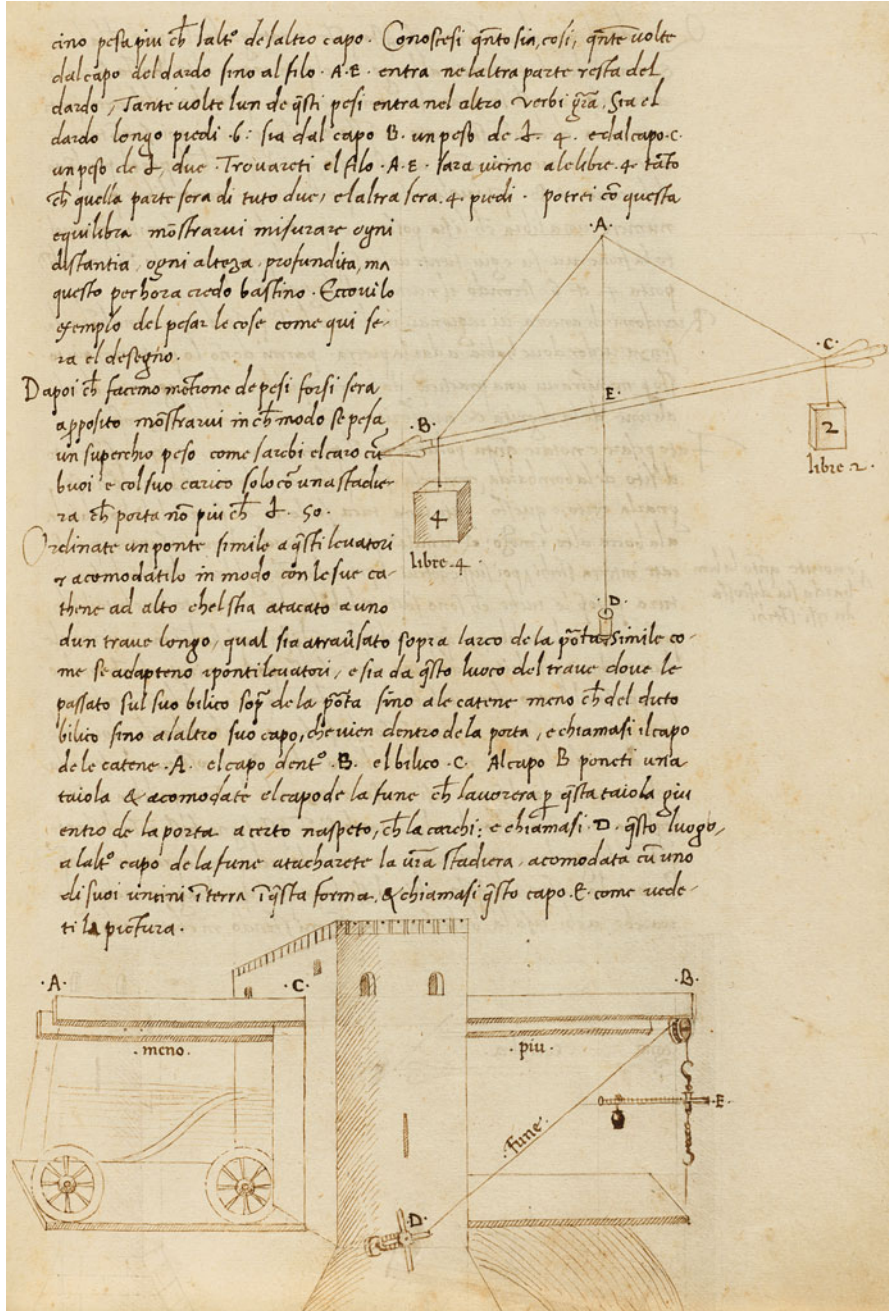 cino pesa piu ch̄ lalt° delaltro capo. Conoscesi q̄nto sia, cosi, q̄nte volte
dal capo del dardo sino al filo .A.E. entra nelaltra parte resta del
dardo, Tante volte lun de q̄sti pesi entra nel altro verbi gr̄a. Sia el
dardo longo piedi .6: sia dal capo B. un peso de ℔. 4. e dal capo .C.
un peso de ℔, due. Trovareti el filo .A.E. sara vicino ale libre .4. tāto
ch̄ quella parte sera di tuto due, e laltra sera .4. piedi. potrei cō questa
equilibra mōstrarvi misurare ogni
distantia, ogni alteza, profundita, ma
questo per hora credo bastino. Eccovi lo
exemplo del pesar le cose come qui se-
ra el desegno.
Dapoi ch̄ facemo mētione de pesi forsi sera
apposito mōstrarvi in ch̄ modo se pesa
un superchio peso come sarebi el caro cū
buoi e col suo carico solo cō una stadie-
ra ch̄ porta nō piu ch̄ ℔. 50.
Ordinate un ponte simile a q̄sti levatori
& acomodatilo in modo con le sue ca-
thene ad alto chel stia atacato a uno
dun trave longo, qual sia atrav̄sato sopra larco de la pōta, simile co-
me se adapteno i ponti levatori, e sia da q̄sto luoco del trave dove le
passato sul suo bilico sop̄ de la pōta sino ale catene meno ch̄ del dicto
bilico sino alaltro suo capo, che vien dentro de la porta, e chiamasi il capo
de le catene .A. el capo dent° .B. el bilico .C. Al capo B poneti una
taiola & acomodate el capo de la fune ch̄ lavorera p̄ q̄sta taiola giu
entro de la porta a certo naspeto, ch̄ la carchi: e chiamasi .D. q̄sto luogo,
a lalt° capo de la fune atacharete la vr̄a stadiera, acomodata cū uno
di suoi uncini ī terra ī q̄sta forma, & chiamasi q̄sto capo .E. come vede-
ti la pictura.
.A.
.C.
E.
.B.
2
libre 2.
4
libre .4.
.D.
.A.
.C.
.B.
.meno.
.piu.
.E.
.fune.
.D.